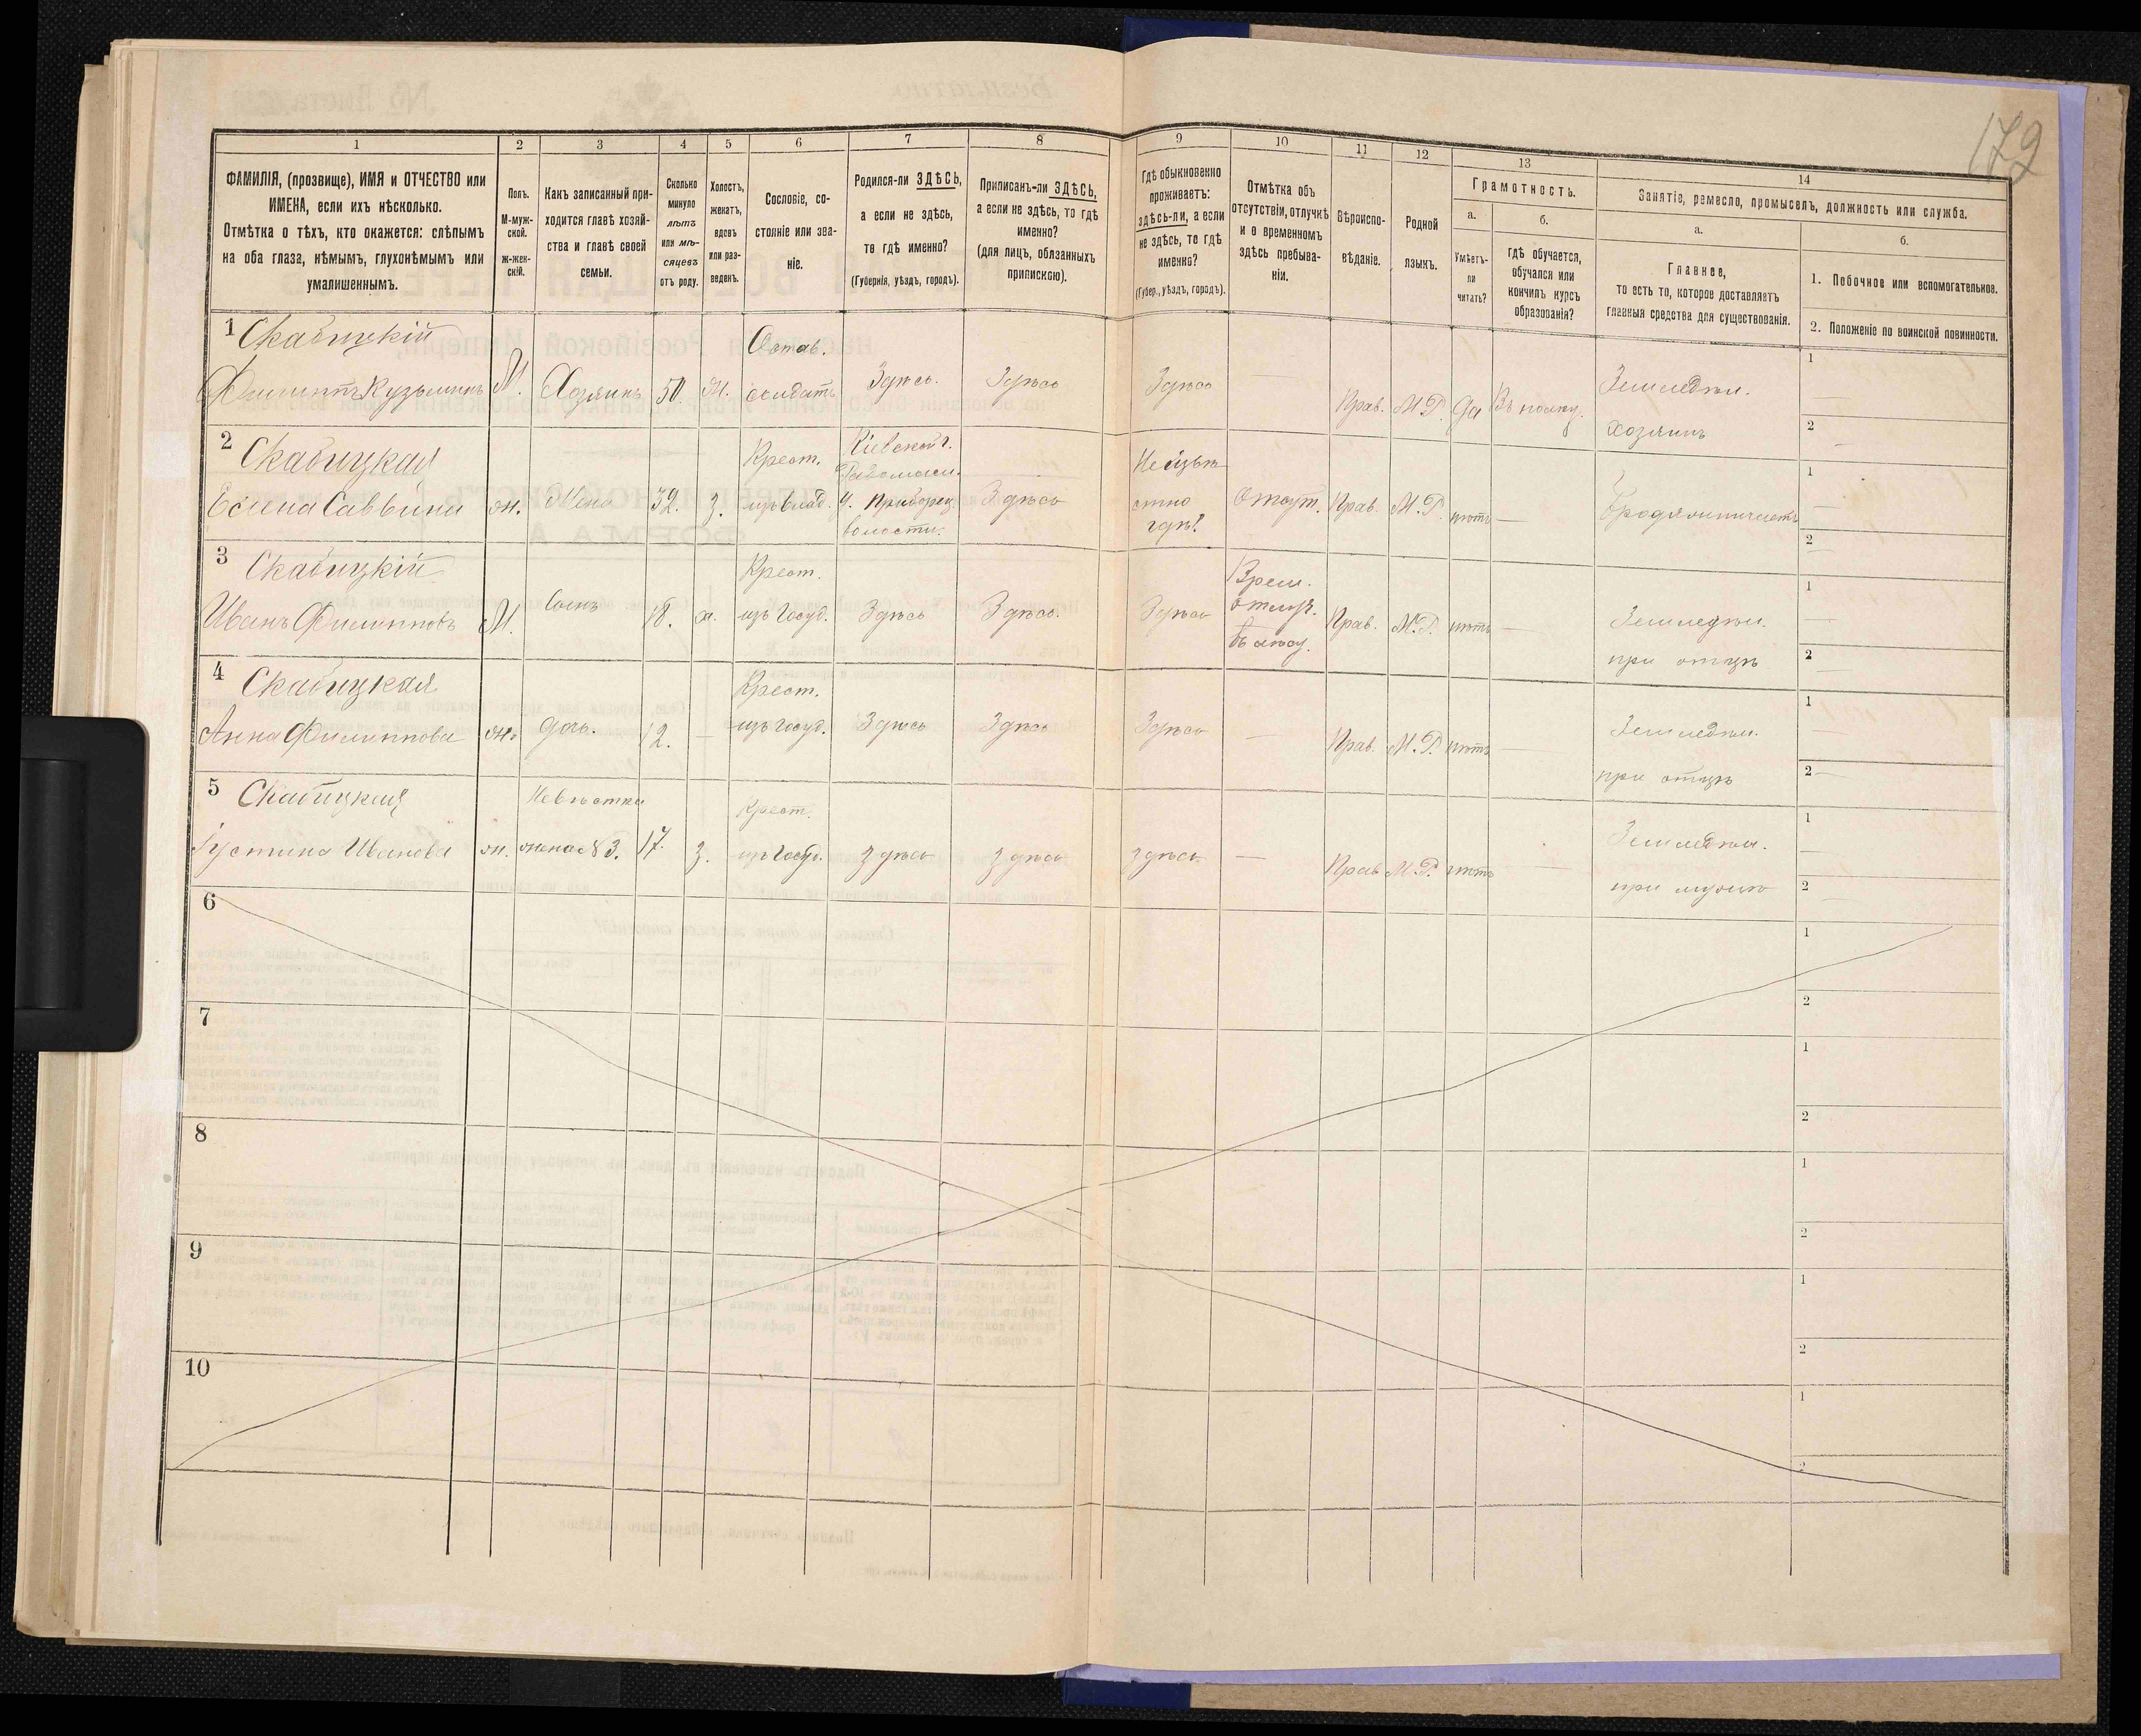 179
1 2 3 4 5 6 7 8 9 10 11 12 13 14
ФАМИЛІЯ, (прозвище), ИМЯ и ОТЧЕСТВО или
ИМЕНА, если ихъ нѣсколько.
Отмѣтка о тѣхъ, кто окажется: слѣпымъ
на оба глаза, нѣмымъ, глухонѣмымъ или
умалишеннымъ.
Полъ.
М-муж-
ской.
Ж-жен-
скій.
Какъ записанный при-
ходится главѣ хозяй-
ства и главѣ своей
семьи.
Сколько
минуло
лѣтъ
или мѣ-
сяцевъ
отъ роду.
Холостъ,
женатъ,
вдовъ
или раз-
веденъ.
Сословіе, со-
стояніе или зва-
ніе.
Родился-ли ЗДѢСЬ,
а если не здѣсь,
то гдѣ именно?
(Губернія, уѣздъ, городъ).
Приписанъ-ли ЗДѢСЬ,
а если не здѣсь, то гдѣ
именно?
(для лицъ, обязанныхъ
припискою).
Гдѣ обыкновенно
проживаетъ:
здѣсь-ли, а если
не здѣсь, то гдѣ
именно?
(Губер., уѣздъ, городъ).
Отмѣтка объ
отсутствіи, отлучкѣ
и о временномъ
здѣсь пребыва-
ніи.
Вѣроиспо-
вѣданіе.
Родной
языкъ.
Грамотность.
а.
Умѣетъ-
ли
читать?
б.
Гдѣ обучается,
обучался или
кончилъ курсъ
образованія?
Занятіе, ремесло, промыселъ, должность или служба.
а.
Главное,
то есть то, которое доставляетъ
главныя средства для существованія.
б.
1. Побочное или вспомогательное.
2. Положеніе по воинской повинности.
1 Скабицкій Остав. 1
Филиппъ Кузьминъ М. Хозяинъ 50. Ж. солдатъ Здѣсь. Здѣсь Здѣсь — Прав. М.Р. Да Въ полку. Земледѣл.
хозяинъ 2
2 Скабицкая Крест. Кіевской г. Неизвѣ 1
Радомысл.
Есина Саввина ж. Жена 32. З. изъ влад. у. Приборец. Здѣсь стно Отсут. Прав. М.Р. нѣтъ — Бродяжничаетъ
волости. гдѣ? 2
3 Скабицкій Крест. Врем. 1
Иванъ Филипповъ М. Сынъ 18. ж. изъ госуд. Здѣсь Здѣсь. Здѣсь отлуч. Прав. М.Р. нѣтъ — Земледѣл.
въ лѣсу. при отцѣ 2
4 Скабицкая Крест. 1
Анна Филиппова ж. дочь. 12. — изъ госуд. Здѣсь Здѣсь Здѣсь — Прав. М.Р. нѣтъ — Земледѣл.
при отцѣ 2
5 Скабицкая Невѣстка Крест. 1
Іустина Иванова ж. жена №3. 17. З. изъ госуд. здѣсь здѣсь здѣсь — Прав М.Р. нѣтъ — Земледѣл.
при мужѣ 2
6 1
2
7 1
2
8 1
2
9 1
2
10 1
2